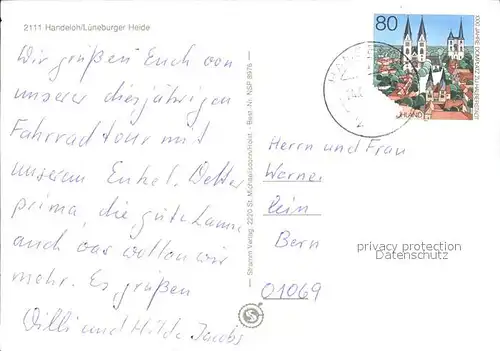 2111 Handeloh/Lüneburger Heide
Wir grüßen Euch von
unserer diesjährigen
Fahrradtour mit
unserem Enkel.
prima, die gute Laune
auch was wollen wir
mehr. Es grüßen
Willi und Hilde Jacobs
Stramm Verlag 2220 St. Michaelisdonn/Holst - Best.-Nr. NSP 8976
80
1000 JAHRE DOMPLATZ ZU HALBERSTADT
HLAND
Herrn und Frau
Werner
Bern
01069
privacy protection
Datenschutz